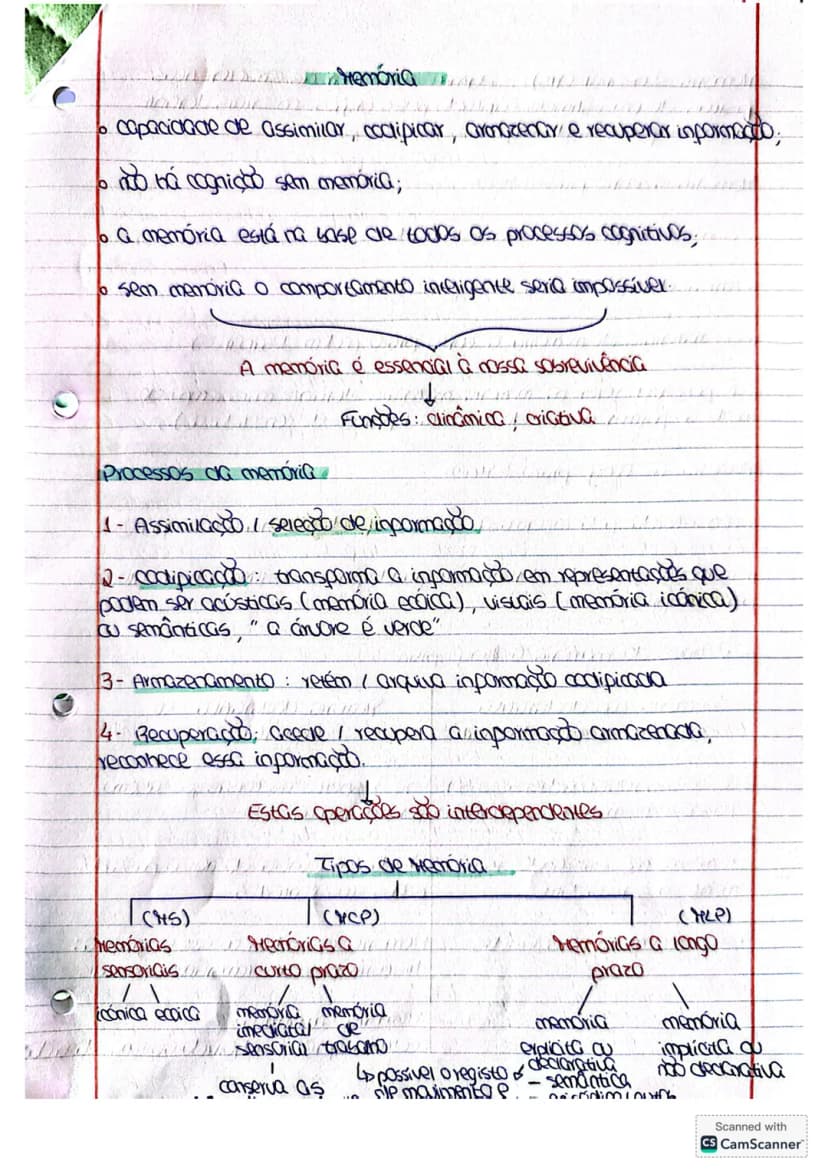 Memória
• capacidade de assimilar, codificar, armazenar e recuperar informação;
• não há cognição sem memória;
• a memória está na base de todos os processos cognitivos;
• sem memória o comportamento inteligente seria impossível.
A memória é essencial à nossa sobrevivência
↓
Funções: dinâmica / criativa
Processos da memória
1 - Assimilação / seleção de informação
2 - codificação: transforma a informação em representações que
podem ser acústicas (memória ecóica), visuais (memória icónica)
ou semânticas, "a árvore é verde"
3 - Armazenamento: retém / arquiva informação codificada
4 - Recuperação: Acede / recupera a informação armazenada,
reconhece essa informação.
↓
Estas operações são interdependentes
Tipos de Memória
(MS) (MCP) (MLP)
Memórias Memórias a Memórias a longo
sensoriais curto prazo prazo
icónica ecoica memória memória memória memória
imediata/ de explícita ou implícita ou
sensorial trabalho declarativa não declarativa
conserva as ↳ possível o registo - semântica
de movimento e
Scanned with
CS CamScanner